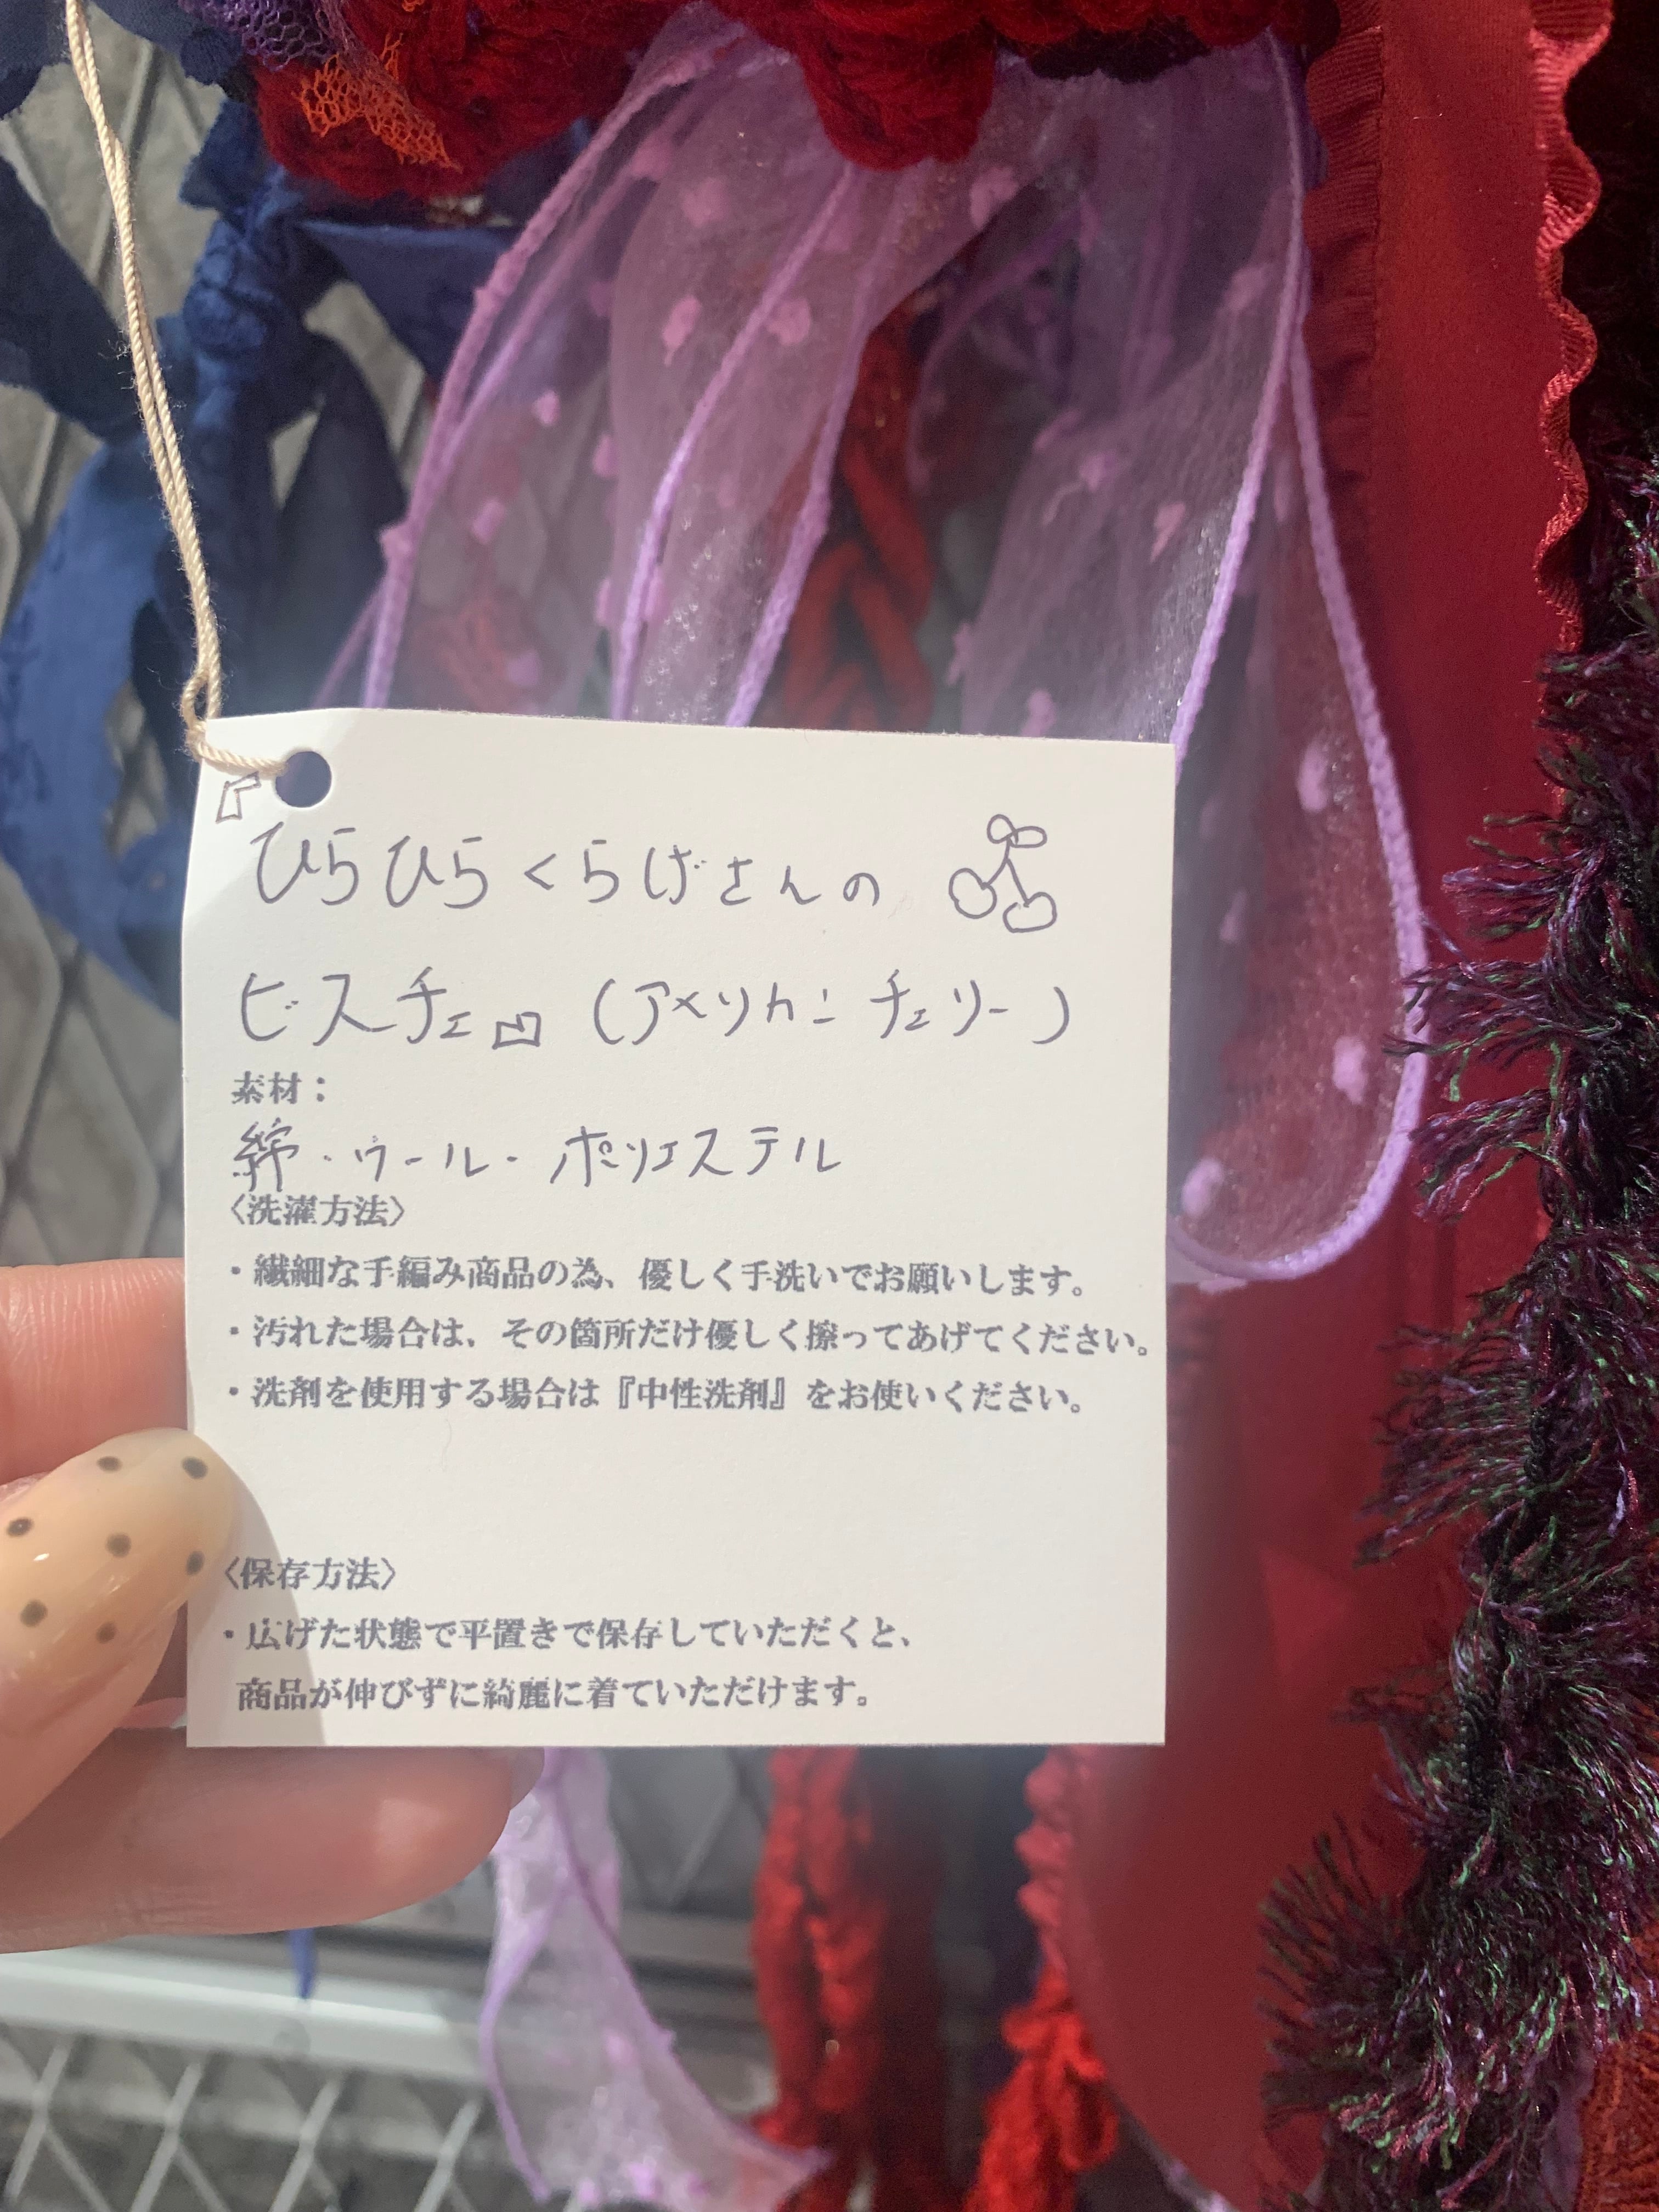 「ひらひらくらげさんの
ビスチェ」(アメリカンチェリー)
素材:
綿・ウール・ポリエステル
〈洗濯方法〉
・繊細な手編み商品の為、優しく手洗いでお願いします。
・汚れた場合は、その箇所だけ優しく擦ってあげてください。
・洗剤を使用する場合は『中性洗剤』をお使いください。
〈保存方法〉
・広げた状態で平置きで保存していただくと、
商品が伸びずに綺麗に着ていただけます。